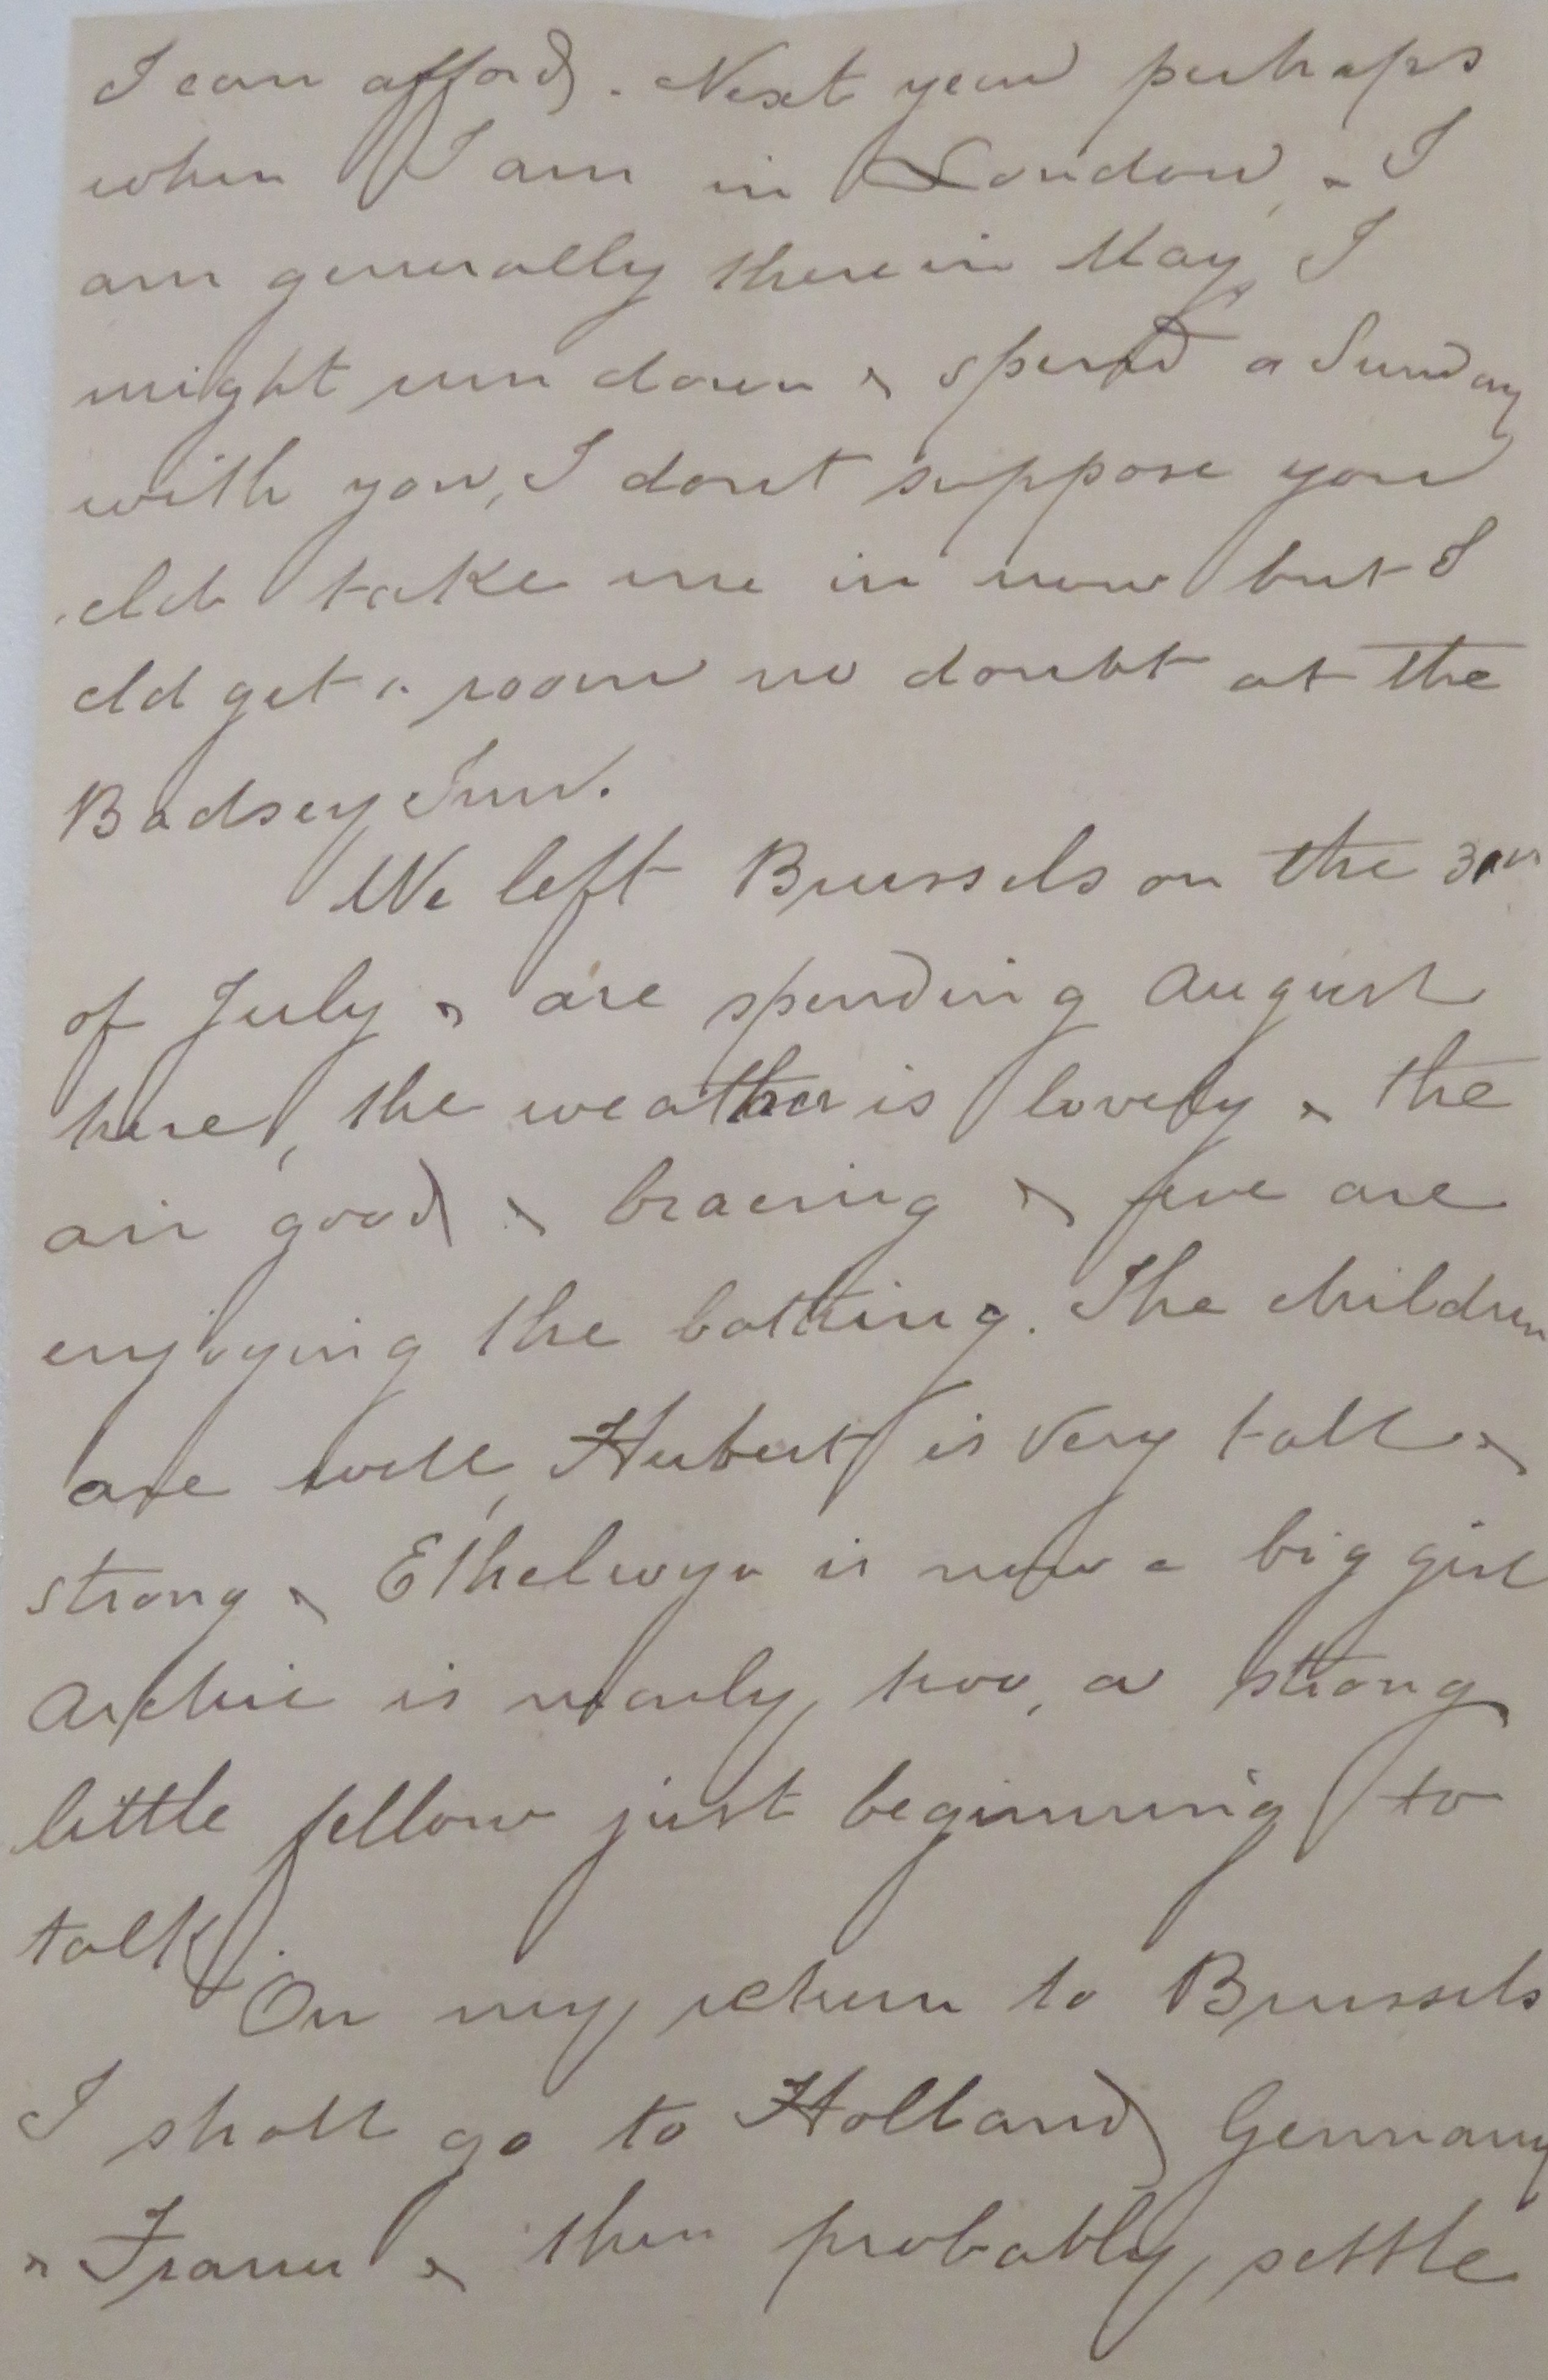 I can afford. Next year perhaps
when I am in London, - I
am generally there in May, I
might run down & spend a Sunday
with you, I dont suppose you
cld take me in now but I
cld get a room no doubt at the
Badsey Inn.
We left Brussels on the
of July & are spending August
here, the weather is lovely & the
air good & bracing & five are
enjoying the bathing. The children
are well, Hubert is very tall &
strong & Ethelwyn is now a big girl
Archie is nearly two, a strong
little fellow just beginning to
talk.
On my return to Brussels
I shall go to Holland Germany
& France & then probably settle